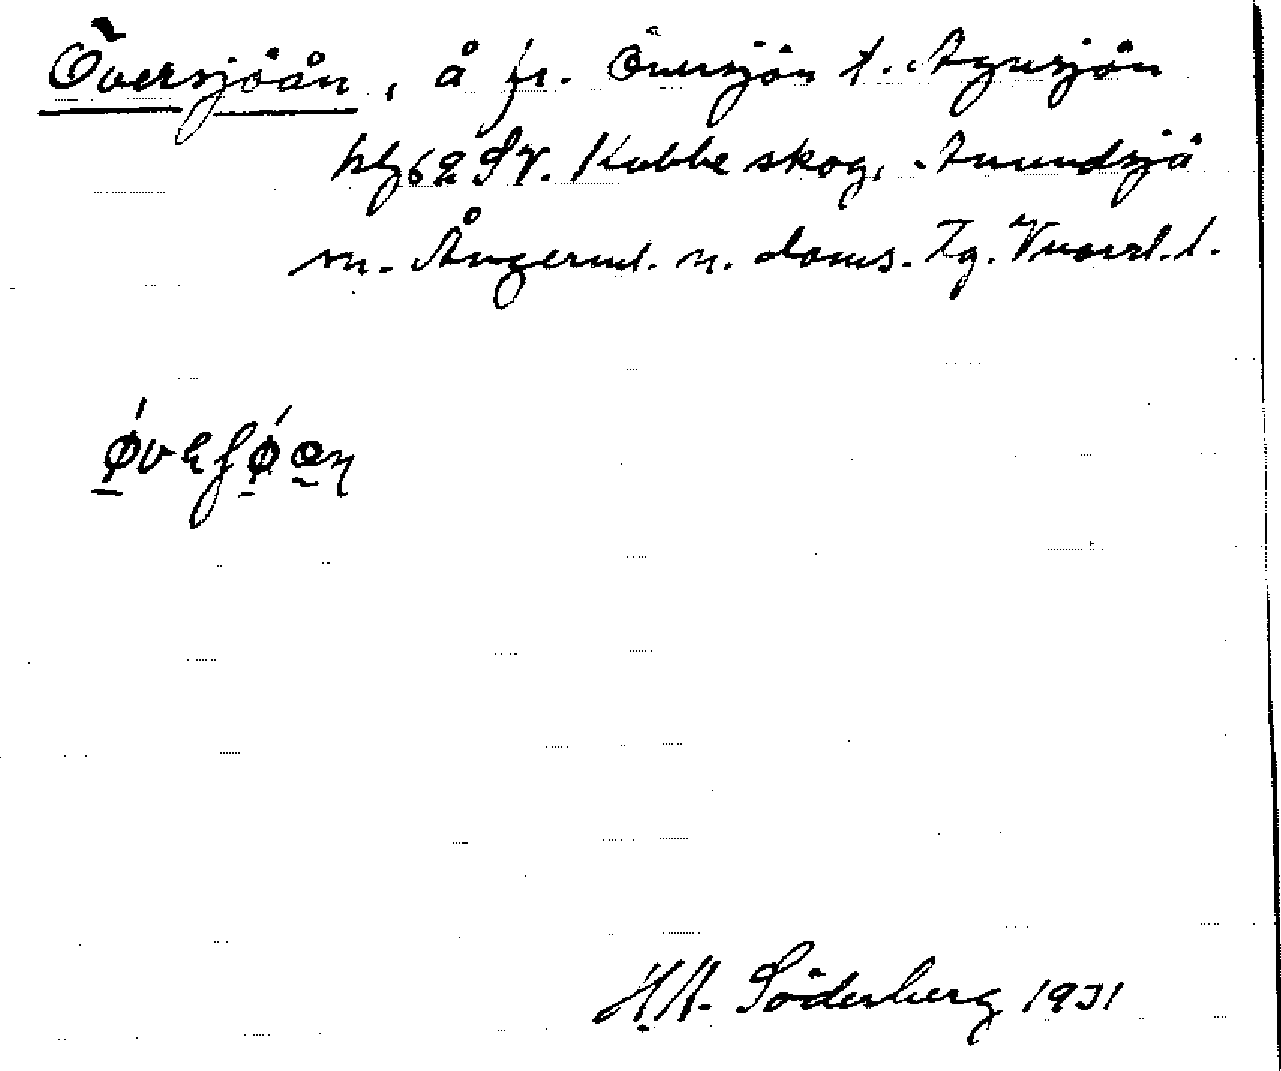 Översjöån, å fr. Översjön t. Agnsjön
hg 62 SV. Kubbe skog, Anundsjö
sn. Ångerml. n. doms. Tg.
øvaʃøan
H.A. Söderberg 1931